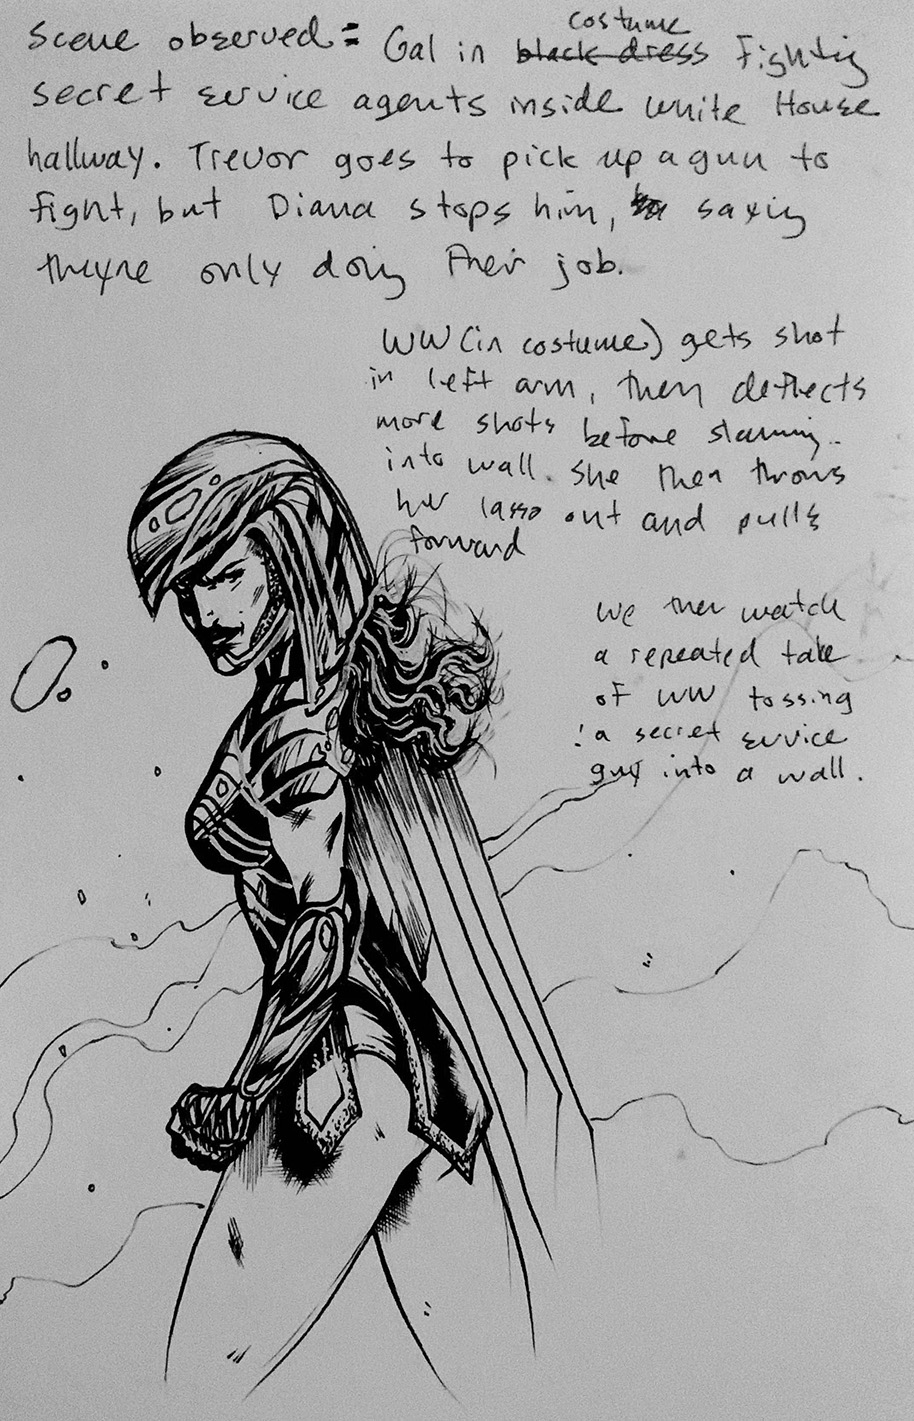 costume
Scene observed: Gal in black dress fighting
secret service agents inside White House
hallway. Trevor goes to pick up a gun to
fight, but Diana stops him, saying
they're only doing their job.
WW (in costume) gets shot
in left arm, then deflects
more shots before slamming
into wall. She then throws
her lasso out and pulls
forward
we then watch
a repeated take
of WW tossing
a secret service
guy into a wall.